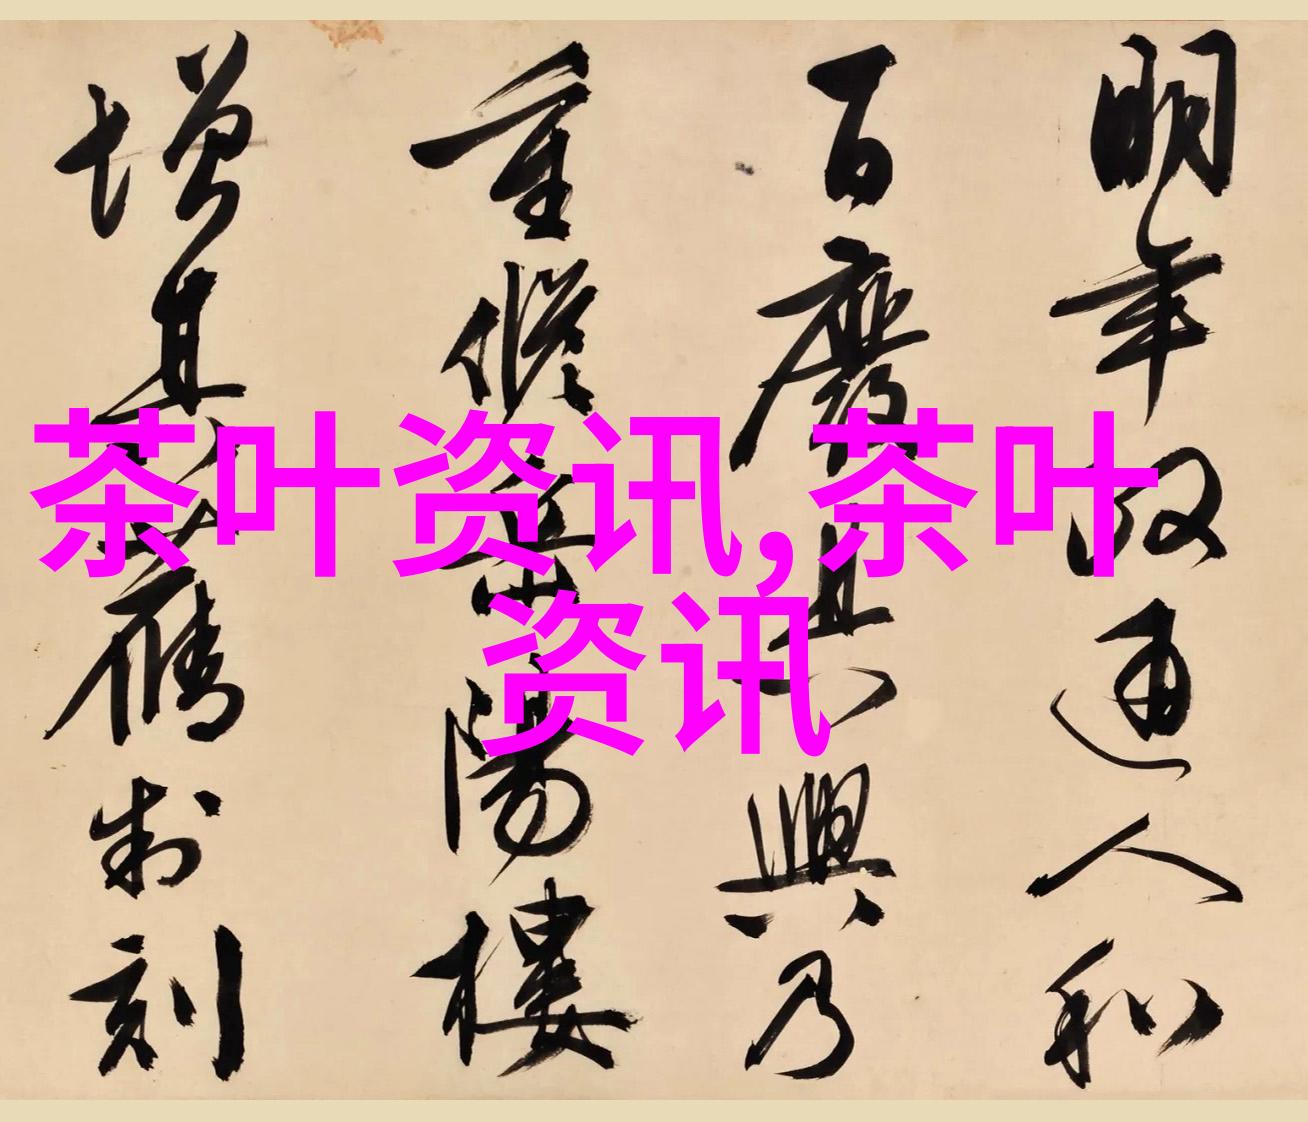 明年政通人和
百廢具興乃
重脩岳陽樓
增其舊制刻
茶叶资讯,茶叶
资讯